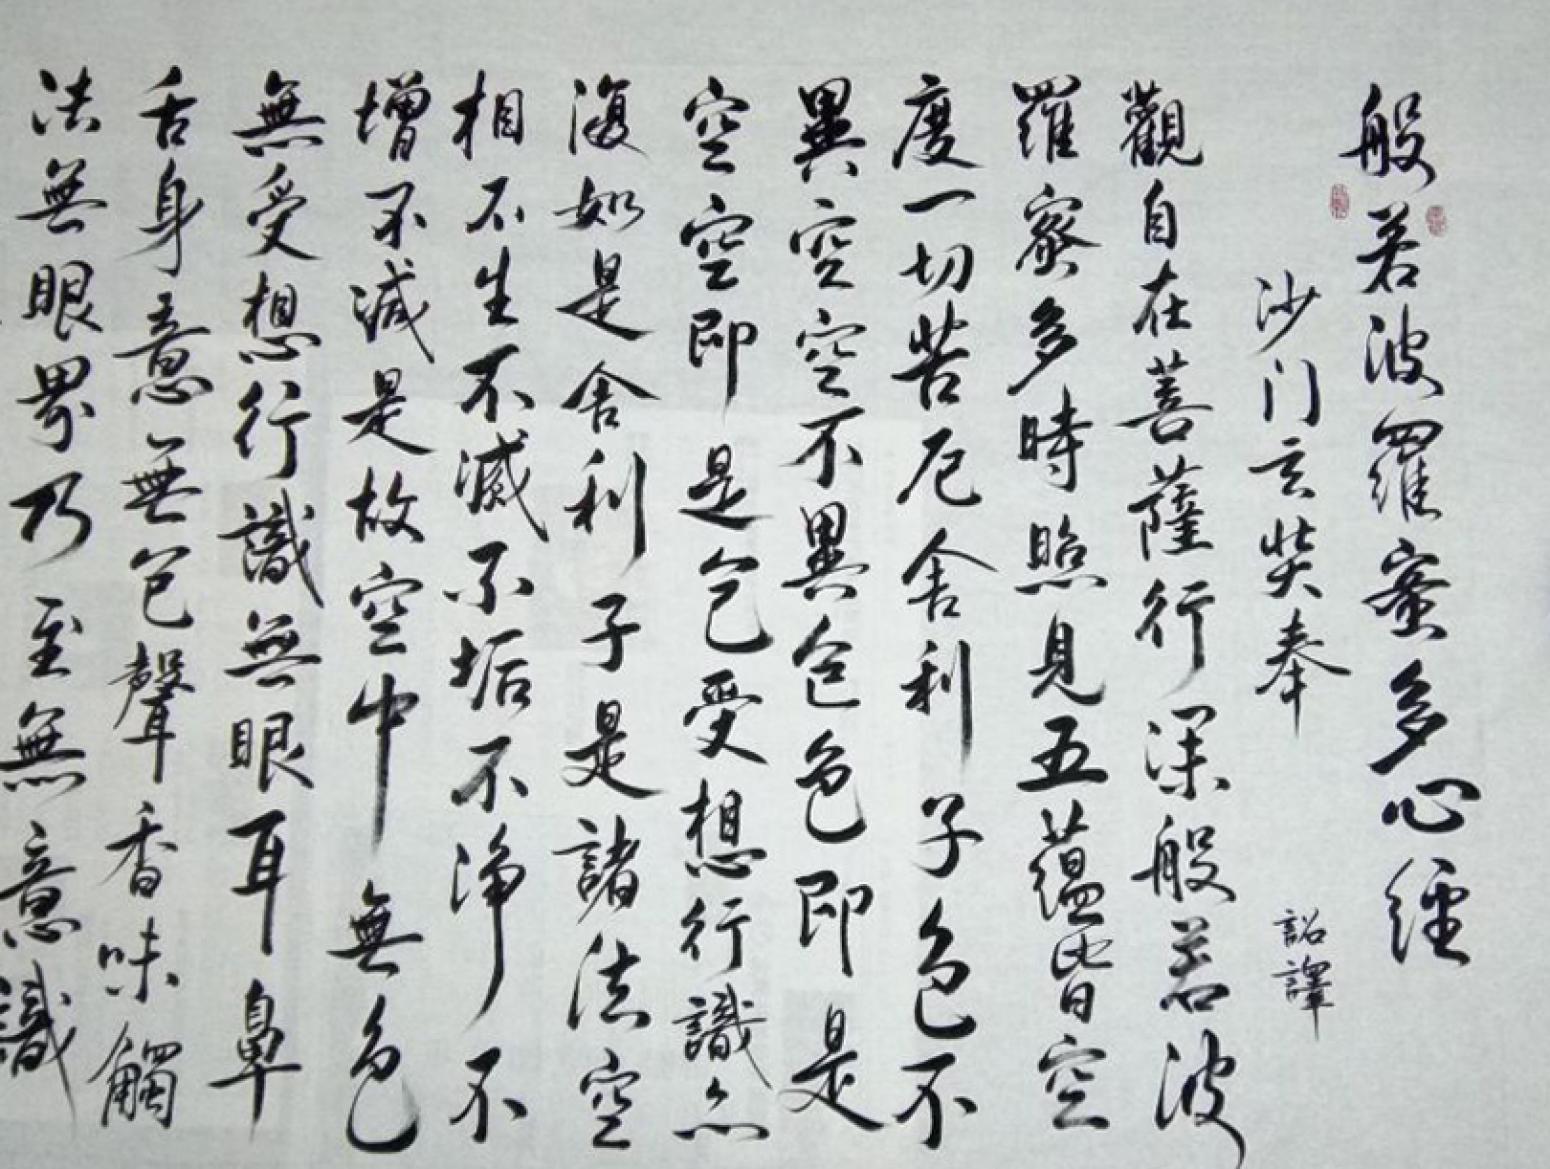 般若波羅蜜多心經
沙门玄奘奉詔譯
觀自在菩薩行深般若波
羅蜜多時照見五蘊皆空
度一切苦厄舍利子色不
異空空不異色色即是
空空即是色受想行識亦
復如是舍利子是諸法空
相不生不滅不垢不净不
增不減是故空中無色
無受想行識無眼耳鼻
舌身意無色聲香味觸
法無眼界乃至無意識